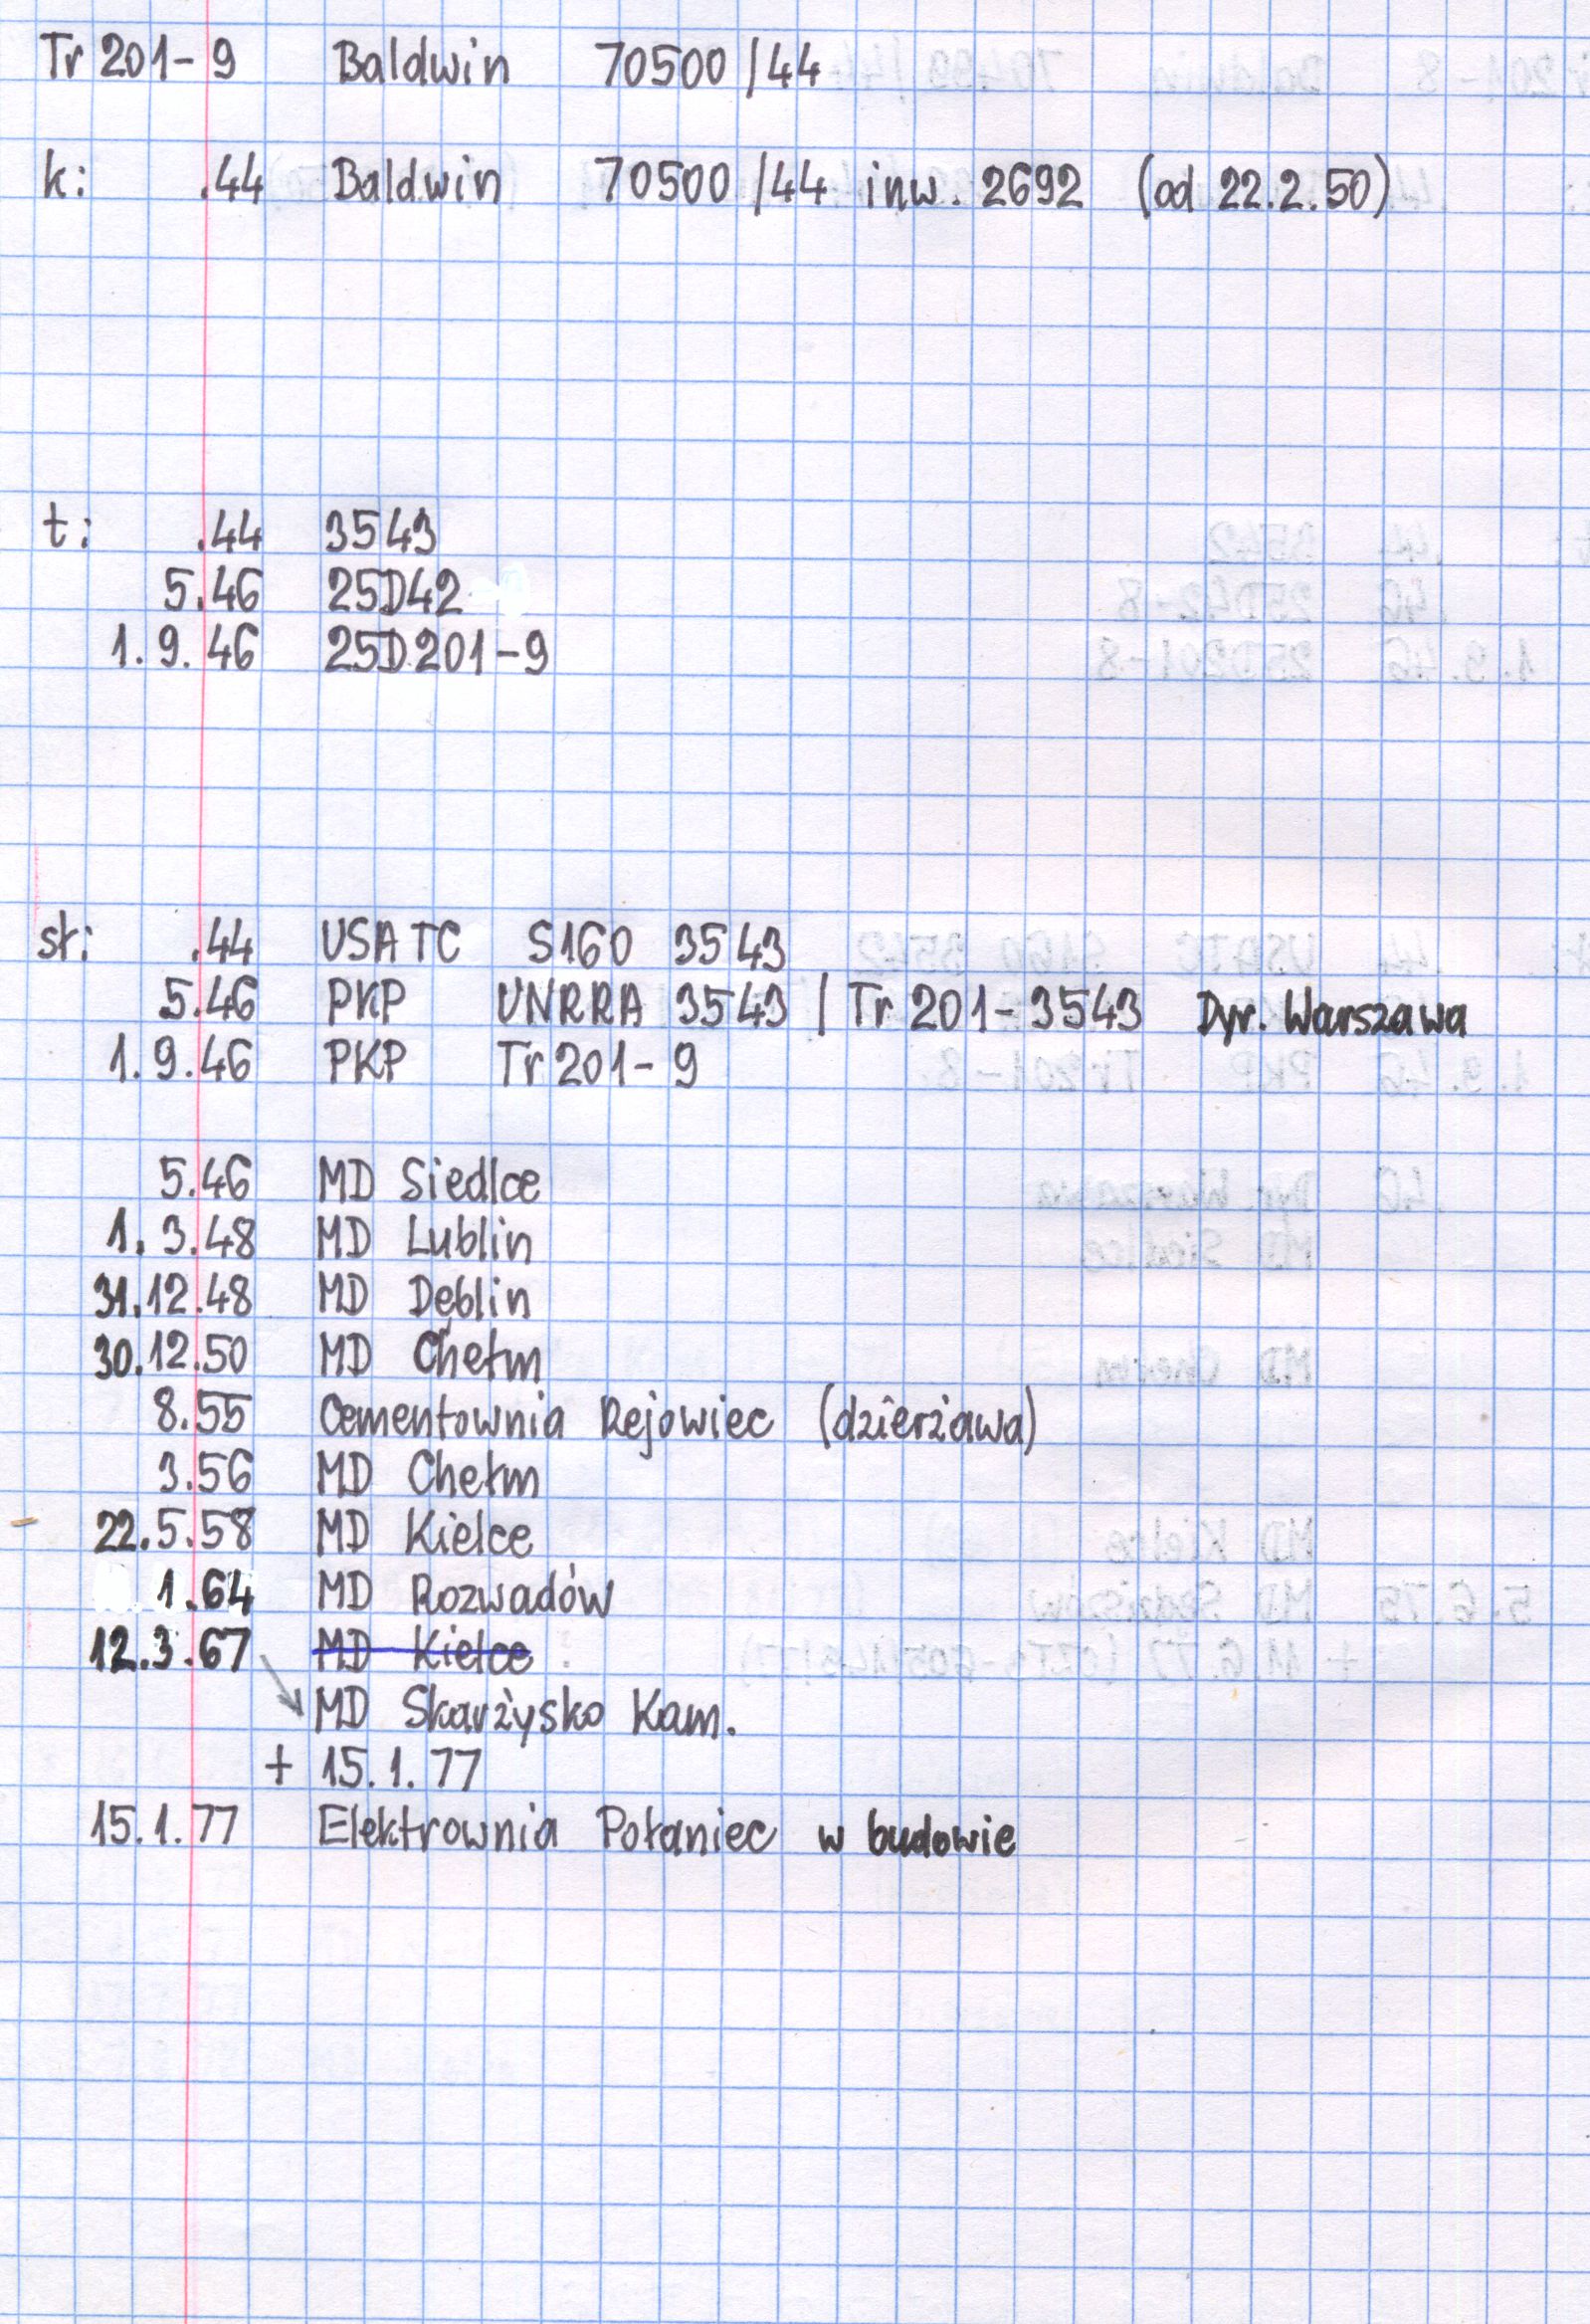 Tr 201-9 Baldwin 70500/44
k: .44 Baldwin 70500/44 inw. 2692 (od 22.2.50)
t: .44 3543
5.46 25D42
1.9.46 25D201-9
sł: .44 USATC S160 3543
5.46 PKP UNRRA 3543 / Tr 201-3543 Dyr. Warszawa
1.9.46 PKP Tr 201-9
5.46 MD Siedlce
1.3.48 MD Lublin
31.12.48 MD Dęblin
30.12.50 MD Chełm
8.55 Cementownia Rejowiec (dzierżawa)
3.56 MD Chełm
22.5.58 MD Kielce
1.64 MD Rozwadów
12.3.67 MD Kielce
MD Skarżysko Kam.
+ 15.1.77
15.1.77 Elektrownia Połaniec w budowie